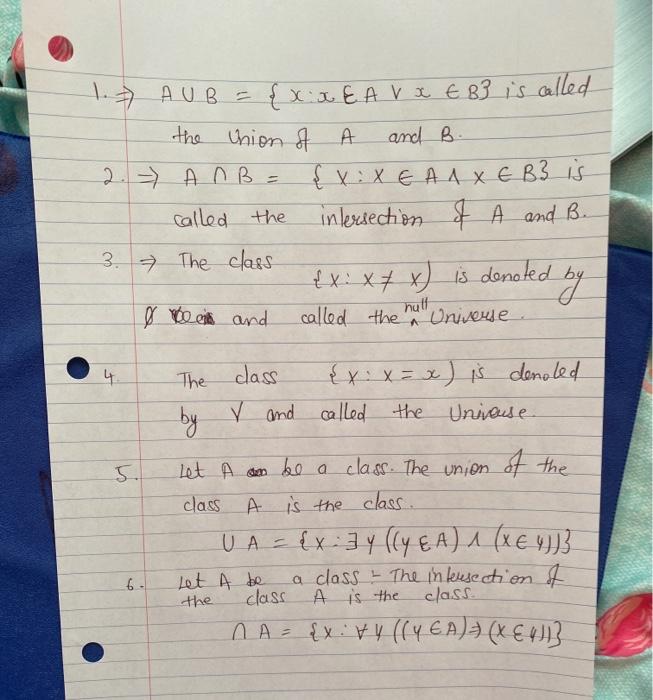 1. ⇒ A ∪ B = { x : x ∈ A ∨ x ∈ B} is called
the Union of A and B.
2. ⇒ A ∩ B = { x : x ∈ A ∧ x ∈ B} is
called the intersection of A and B.
3. ⇒ The class {x : x ≠ x) is denoted by
∅ and called the null Universe.
4. The class {x : x = x) is denoted
by V and called the Universe.
5. Let A be a class. The union of the
class A is the class.
∪ A = {x : ∃ y ((y ∈ A) ∧ (x ∈ y))}
6. Let A be a class - The intersection of
the class A is the class.
∩ A = {x : ∀ y ((y ∈ A) ⇒ (x ∈ y))}